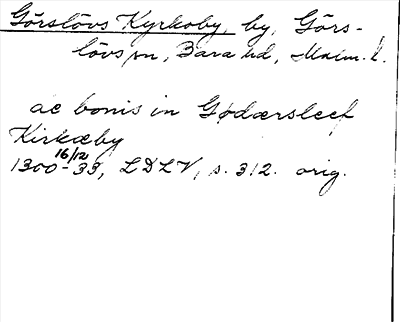 Görslövs Kyrkoby, by, Görs-
lövs sn, Bara hd, Malm. l.
ac bonis in Gødærsleef
Kirkæby
16/12
1300-33, LDLV, s. 312. orig.